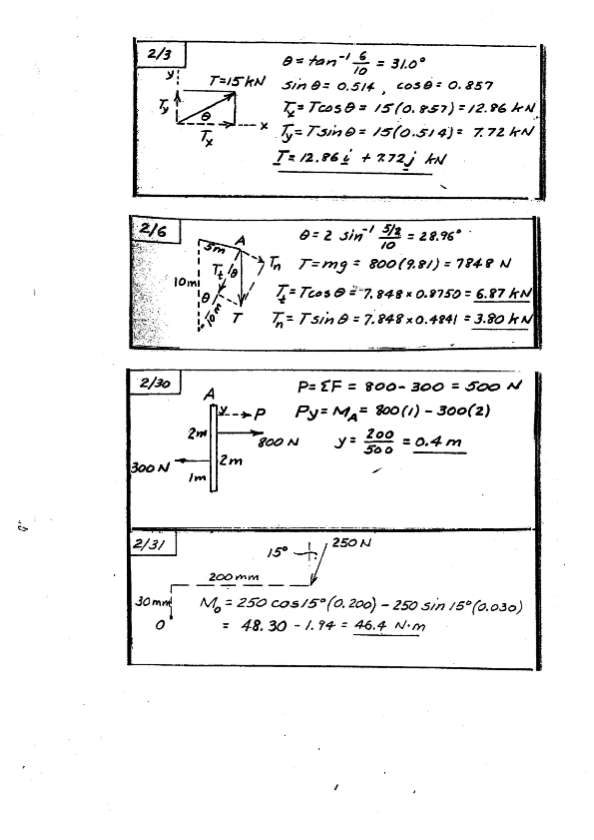 2/3
θ = tan⁻¹ 6/10 = 31.0°
y
T=15 kN
sin θ = 0.514 , cos θ = 0.857
Ty
θ
x
Tx
Tx = T cos θ = 15(0.857) = 12.86 kN
Ty = T sin θ = 15(0.514) = 7.72 kN
T = 12.86 i + 7.72 j kN
2/6
θ = 2 sin⁻¹ (5/2)/10 = 28.96°
5m
A
Tn
T = mg = 800(9.81) = 7848 N
Tt
θ
10m
θ
T
Tt = T cos θ = 7.848 × 0.8750 = 6.87 kN
Tn = T sin θ = 7.848 × 0.4841 = 3.80 kN
2/30
P = ΣF = 800 - 300 = 500 N
A
y
P
Py = M_A = 800(1) - 300(2)
2m
800 N
y = 200/500 = 0.4 m
300 N
2m
1m
2/31
15°
250 N
200 mm
30 mm
M_o = 250 cos 15° (0.200) - 250 sin 15° (0.030)
O
= 48.30 - 1.94 = 46.4 N·m